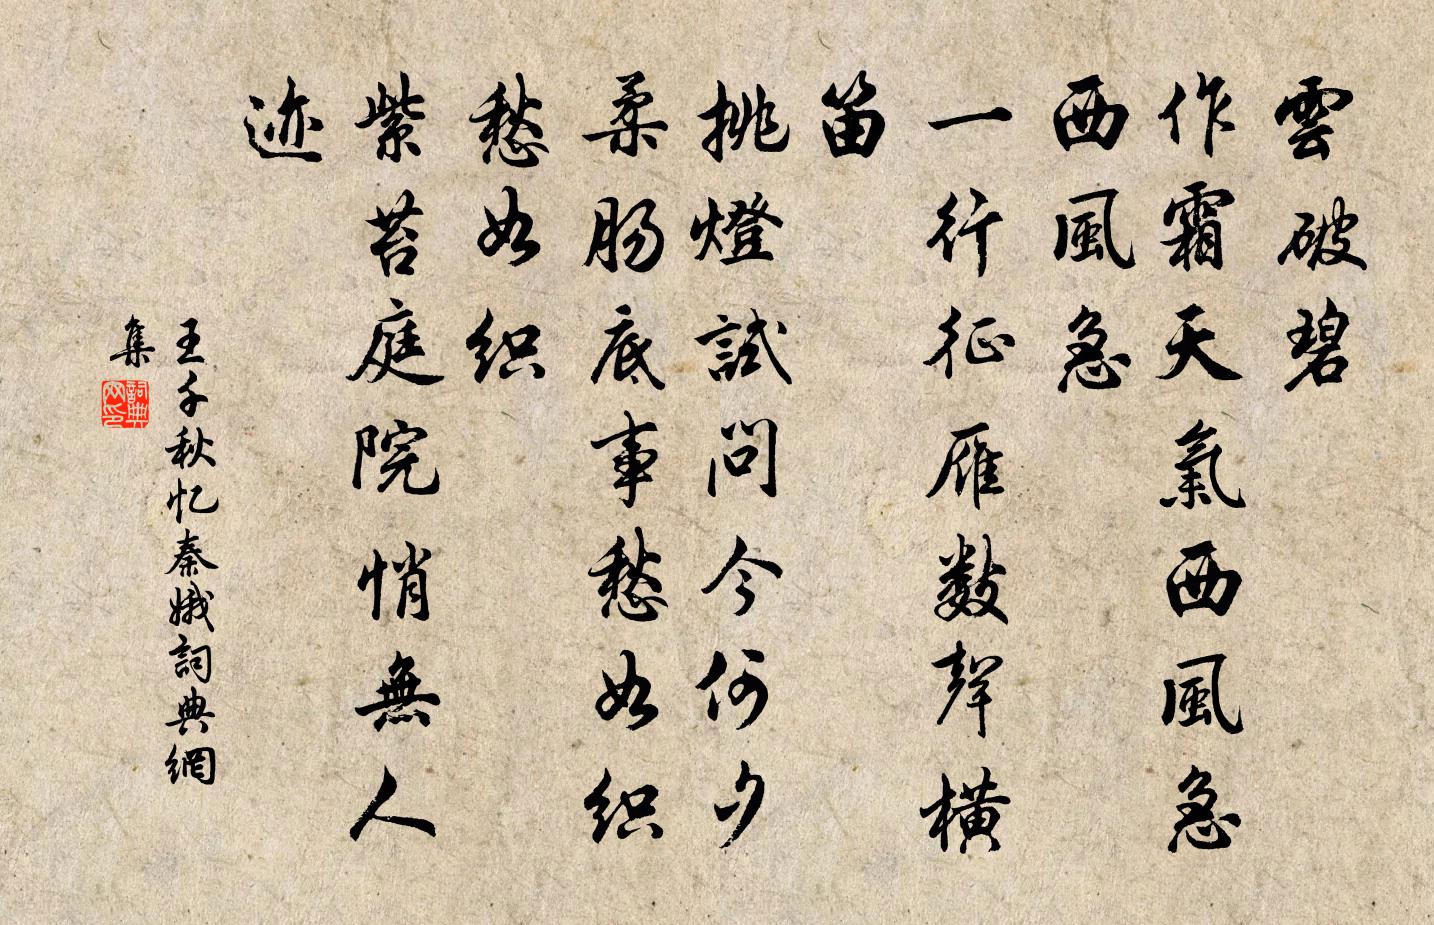 雲破碧
作霜天氣西風急
西風急
一行征雁數聲橫
笛
挑燈試問今何夕
柔腸底事愁如织
愁如织
紫苔庭院悄無人
迹
王千秋忆秦娥詞典網
集
詞典
网印